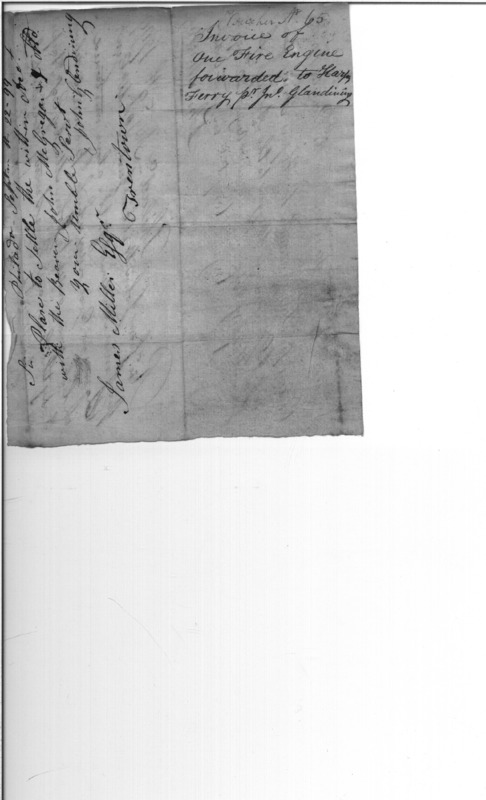 Voucher No. 65.
Invoice of
One Fire Engine
forwarded to Harp.
Ferry pr Jno. Glandining
Philada. Septem 22 - 99
Sir
Please to Settle the within acct.
with the Bearer John McGregor &
your humble Servt
John Glandining
James Miller Esqr
Trentown